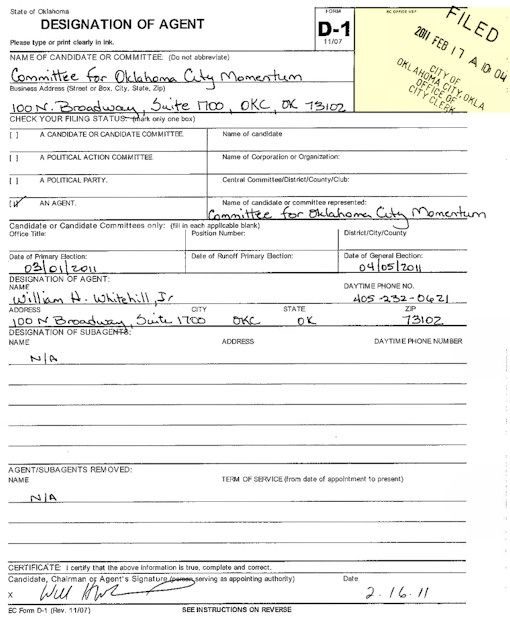 State of Oklahoma
DESIGNATION OF AGENT
FORM
D-1
11/07
EC OFFICE USE
FILED
2011 FEB 17 A 10:04
CITY OF
OKLAHOMA CITY, OKLA
OFFICE OF
CITY CLERK
Please type or print clearly in ink.
NAME OF CANDIDATE OR COMMITTEE: (Do not abbreviate)
Committee for Oklahoma City Momentum
Business Address (Street or Box, City, State, Zip)
100 N. Broadway, Suite 1700, OKC, OK 73102
CHECK YOUR FILING STATUS: (mark only one box)
[ ] A CANDIDATE OR CANDIDATE COMMITTEE. Name of candidate
[ ] A POLITICAL ACTION COMMITTEE Name of Corporation or Organization:
[ ] A POLITICAL PARTY. Central Committee/District/County/Club:
[✓] AN AGENT. Name of candidate or committee represented:
Committee for Oklahoma City Momentum
Candidate or Candidate Committees only: (fill in each applicable blank)
Office Title: Position Number: District/City/County
Date of Primary Election: Date of Runoff Primary Election: Date of General Election:
03/01/2011 04/05/2011
DESIGNATION OF AGENT:
NAME DAYTIME PHONE NO.
William H. Whitehill, Jr 405-232-0621
ADDRESS CITY STATE ZIP
100 N Broadway, Suite 1700 OKC OK 73102
DESIGNATION OF SUBAGENTS:
NAME ADDRESS DAYTIME PHONE NUMBER
N/A
AGENT/SUBAGENTS REMOVED:
NAME TERM OF SERVICE (from date of appointment to present)
N/A
CERTIFICATE: I certify that the above information is true, complete and correct.
Candidate, Chairman or Agent's Signature (person serving as appointing authority) Date
X 2.16.11
EC Form D-1 (Rev. 11/07) SEE INSTRUCTIONS ON REVERSE